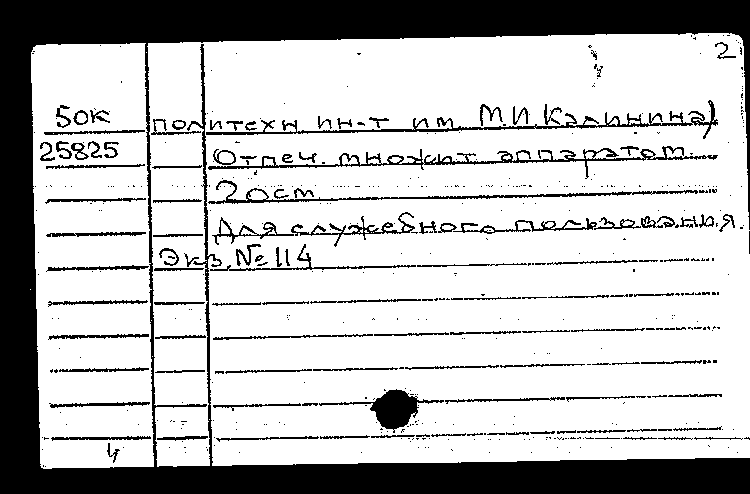 2
50к политехн ин-т им М.И.Калинина)
25825 Отпеч. множит аппаратом.
20см
Для служебного пользования.
Экз.№114